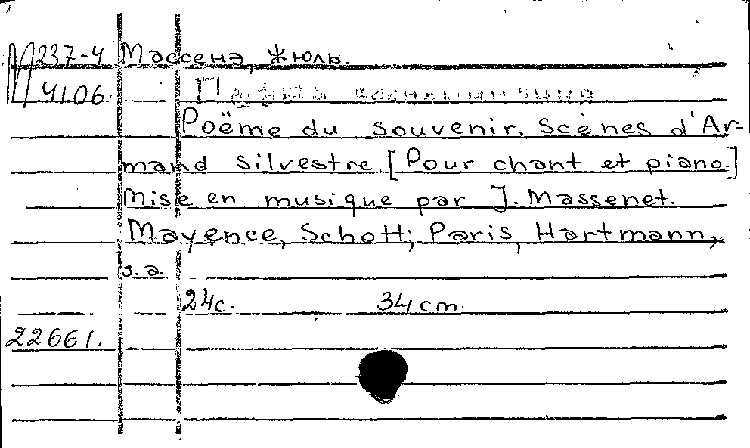 М237-4 Массенэ, Жюль.
41.06
Poëme du souvenir. Scènes d'Ar-
mand Silvestre [Pour chant et piano.]
Mise en musique par J. Massenet.
Mayence, Schott; Paris, Hartmann,
s.a.
24с. 34 cm.
22661.